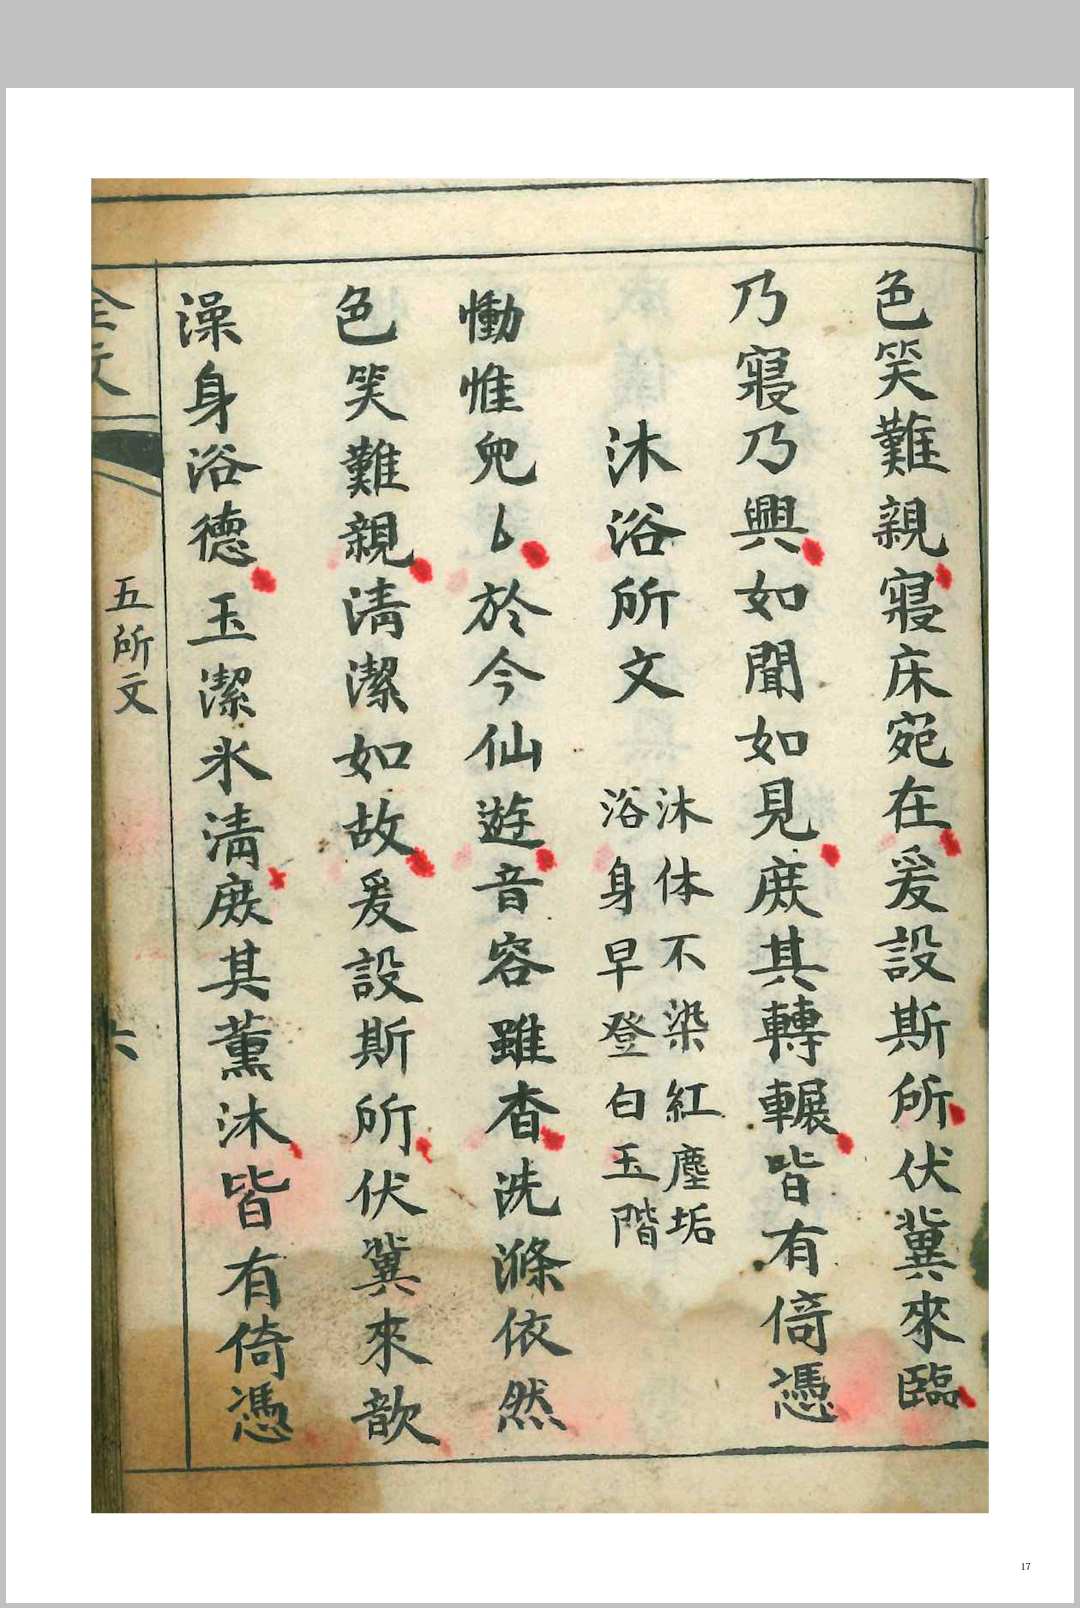 色笑難親寢床宛在爰設斯所伏冀來臨
乃寢乃興如聞如見庶其轉輾皆有倚憑
沐浴所文
沐体不染紅塵垢
浴身早登白玉階
慟惟兜〻於今仙遊音容雖杳洗滌依然
色笑難親清潔如故爰設斯所伏冀來歆
澡身浴德玉潔氷清庶其薰沐皆有倚憑
五所文
六
17